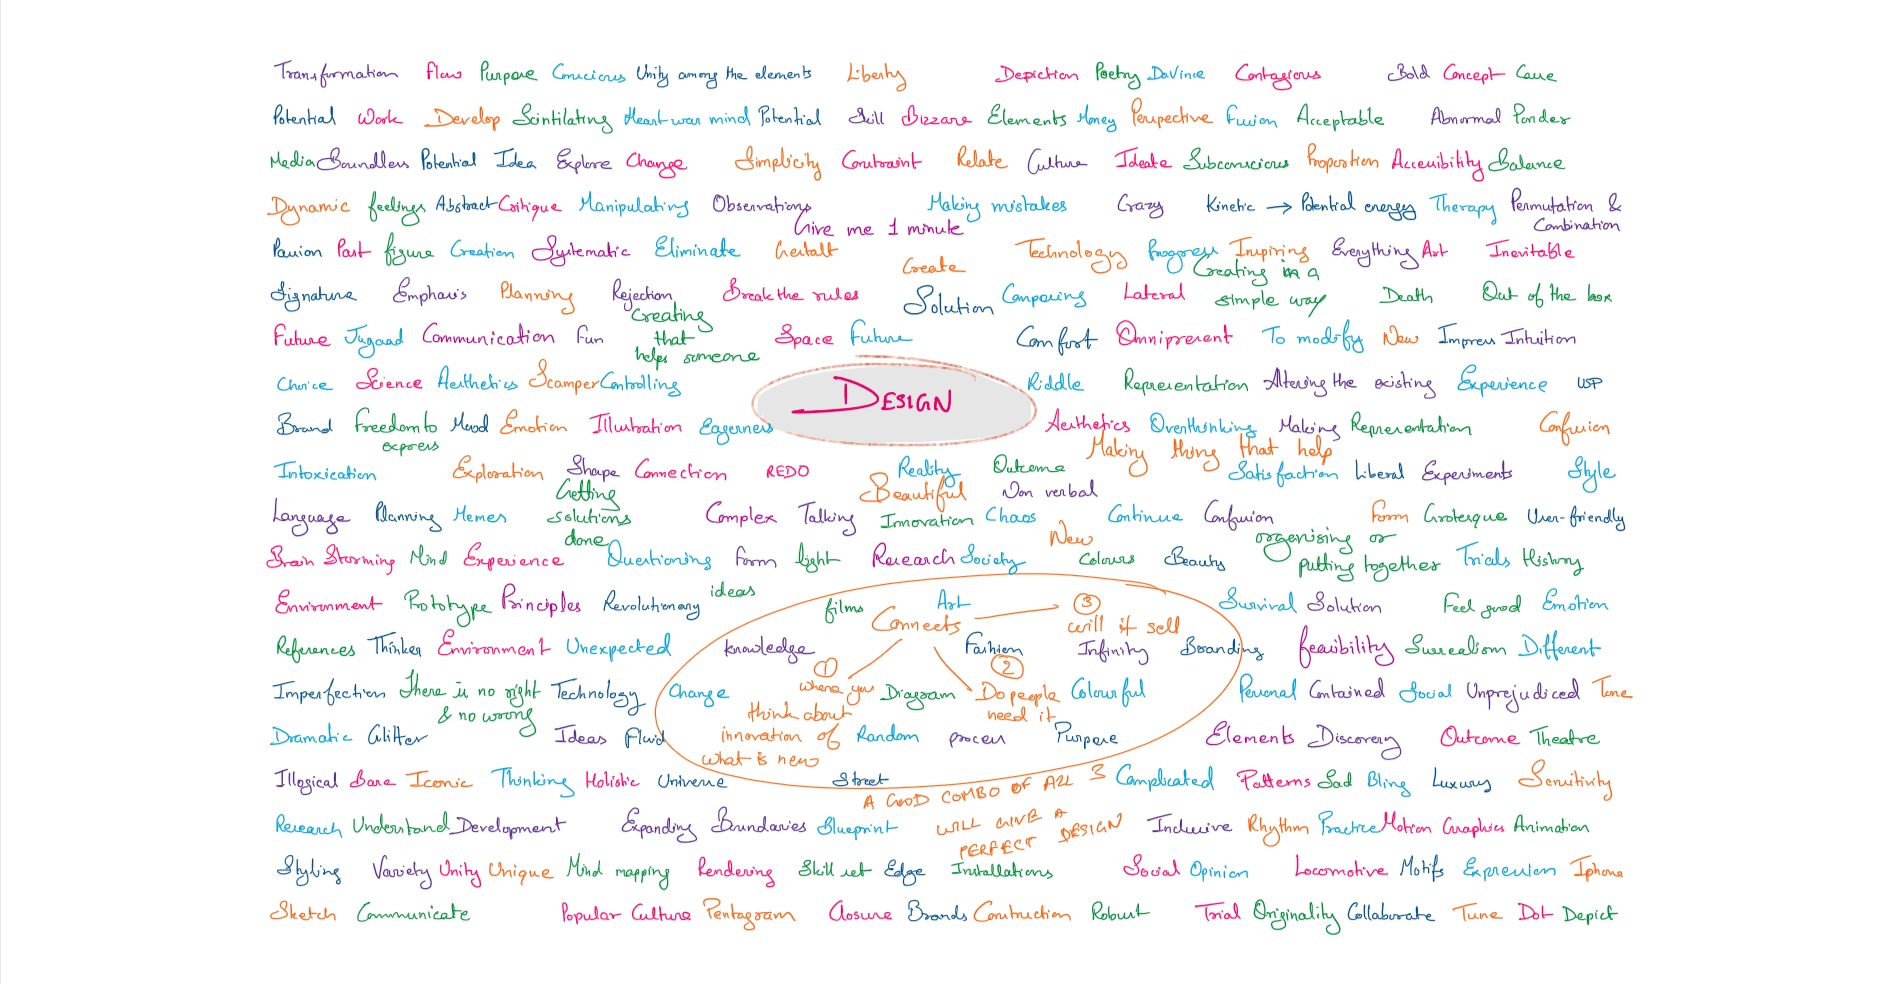 Transformation Flow Purpose Concious Unity among the elements Liberty Depiction Poetry DaVince Contagious Bold Concept Cause
Potential Work Develop Scintilating Heart was mind Potential Skill Bizzare Elements Money Perspective Fusion Acceptable Abnormal Ponder
Media Boundless Potential Idea Explore Change Simplicity Contraint Relate Culture Ideate Subconscious Proportion Accessibility Balance
Dynamic feelings Abstract Critique Manipulating Observations Making mistakes Crazy Kinetic → Potential energy Therapy Permutation &
Give me 1 minute Combination
Passion Past figure Creation Systematic Eliminate Gestalt Technology Progress Inspiring Everything Art Inevitable
Create Creating in a
Signature Emphasis Planning Rejection Break the rules Solution Composing Lateral simple way Death Out of the box
Creating
Future Jugaad Communication Fun that Space Future Comfort Omnipresent To modify New Impress Intuition
helps someone
Choice Science Aesthetics Scamper Controlling DESIGN Riddle Representation Altering the existing Experience USP
Brand Freedom to Mood Emotion Illustration Eagerness Aesthetics Overthinking Making Representation Confusion
express Making thing that help
Intoxication Exploration Shape Connection REDO Reality Outcome Satisfaction Liberal Experiments Style
Getting Beautiful Non verbal
Language Planning Memes solutions Complex Talking Innovation Chaos Continue Confusion Form Grotesque User-friendly
done New organising or
Brain Storming Mind Experience Questioning Form light Research Society Colours Beauty putting together Trials History
ideas
Environment Prototype Principles Revolutionary films Art ③ Survival Solution Feel good Emotion
Connects will it sell
References Thinker Environment Unexpected knowledge Fashion Infinity Branding feasibility Surrealism Different
① ②
Imperfection There is no right Technology Change where you Diagram Do people Colourful Personal Contained Social Unprejudiced Tone
& no wrong think about need it
Dramatic Glitter Ideas Fluid innovation of Random process Purpose Elements Discovery Outcome Theatre
what is new
Illogical Base Iconic Thinking Holistic Universe Street Complicated Patterns Sad Bling Luxury Sensitivity
A GOOD COMBO OF ALL 3
Research Understand Development Expanding Boundaries Blueprint WILL GIVE A Inclusive Rhythm Practice Motion Graphics Animation
PERFECT DESIGN
Styling Variety Unity Unique Mind mapping Rendering Skill set Edge Installations Social Opinion Locomotive Motifs Expression Iphone
Sketch Communicate Popular Culture Pentagram Closure Brands Construction Robust Trial Originality Collaborate Tune Dot Depict